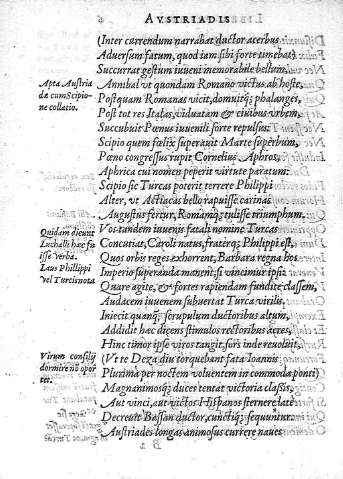 AVSTRIADIS
(Inter currendum narrabat ductor acerbus
Aduersum fatum, quod iam sibi forte timebat)
Succurrat gestum iuueni memorabile bellum,
Apta Austria
dæ cum Scipio-
ne collatio.
Annibal vt quondam Romano victus ab hoste,
Postquam Romanas vicit, domuitq; phalanges,
Post tot res Italas, viduatam & ciuibus vrbem,
Succubuit Pœnus iuuenili forte repulsus.
Scipio quem fœlix superauit Marte superbum,
Pœno congressus rupit Cornelius Aphros,
Aphrica cui nomen peperit virtute paratum:
Scipio sic Turcas poterit terrere Philippi
Alter, vt Actiacas bello rapuisse carinas
Augustus fertur, Romamq; tulisse triumphum.
Quidam dicunt
Luchalis hæc fu
isse verba.
Laus Phillippi
vel Turcis nota
Vos tandem iuuenis fatali nomine Turcas
Concutiat, Caroli natus, fraterq; Philippi est,
Quos orbis reges exhorrent, Barbara regna hos
Imperio superanda manent; si vincimur ipsi:
Quare agite, & fortes rapiendam fundite classem,
Audacem iuuenem subuertat Turca virilis,
Iniecit quanq; scrupulum ductoribus altum,
Addidit hæc dicens stimulos rectoribus acres,
Hinc timor ipse viros tangit, sors inde reuoluit,
Virum consilij
dormire nõ opor
tet.
(Vt te Deza diu torquebant fata Ioannis
Plurima per noctem voluentem incommoda ponti)
Magnanimosq; duces tentat victoria classis,
Aut vinci, aut victos Hispanos sternere late
Decreuit Bassan ductor, cunctiq; sequuntur.
Austriades longas animosus currere naues